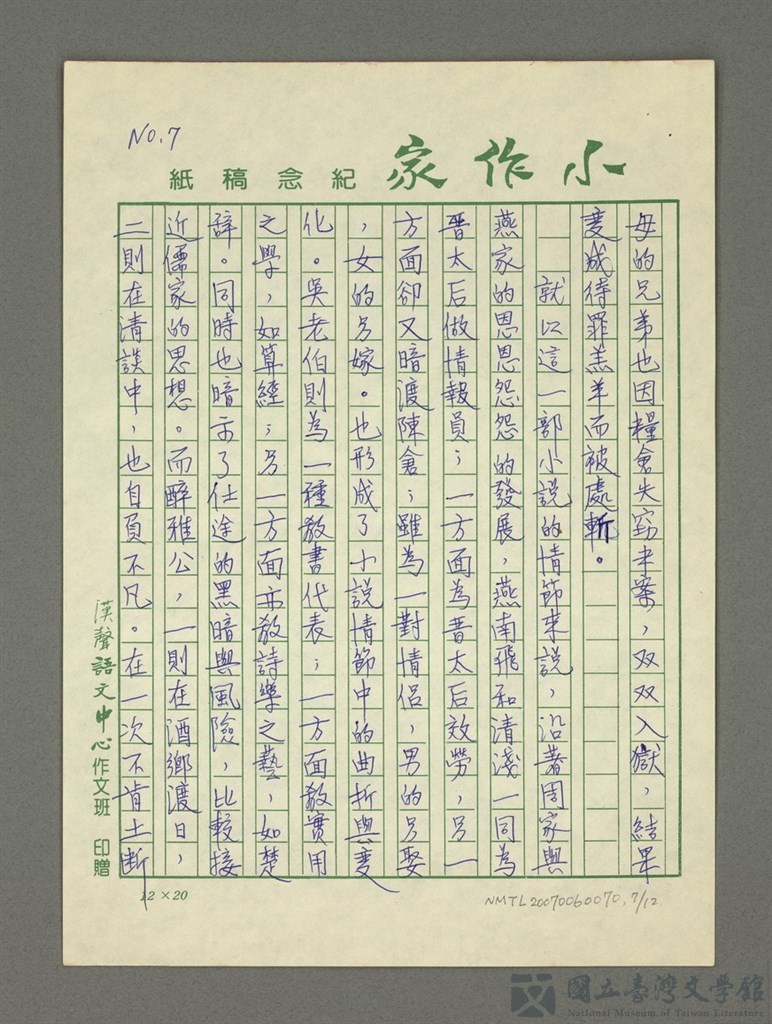 NO.7
小作家
紀念稿紙
母的兄弟也因糧倉失竊末案，双双入獄，結果
变成待罪羔羊而被處斬。
就以這一部小說的情節來說，沿著周家與
燕家的恩恩怨怨的發展，燕南飛和清淺一同為
晉太后做情報員；一方面為晉太后效勞，另一
方面卻又暗渡陳倉；雖為一對情侶，男的另娶
，女的另嫁。也形成了小說情節中的曲折與变
化。吳老伯則為一種教書代表；一方面教實用
之學，如算經；另一方面亦教詩樂之藝，如楚
辞。同時也暗示了仕途的黑暗與風險，比較接
近儒家的思想。而醉雅公，一則在酒鄉渡日，
二則在清談中，也自負不凡。在一次不肯土断
漢聲語文中心作文班 印贈
12×20
NMTL20070060070,7/12
國立臺灣文學館
National Museum of Taiwan Literature